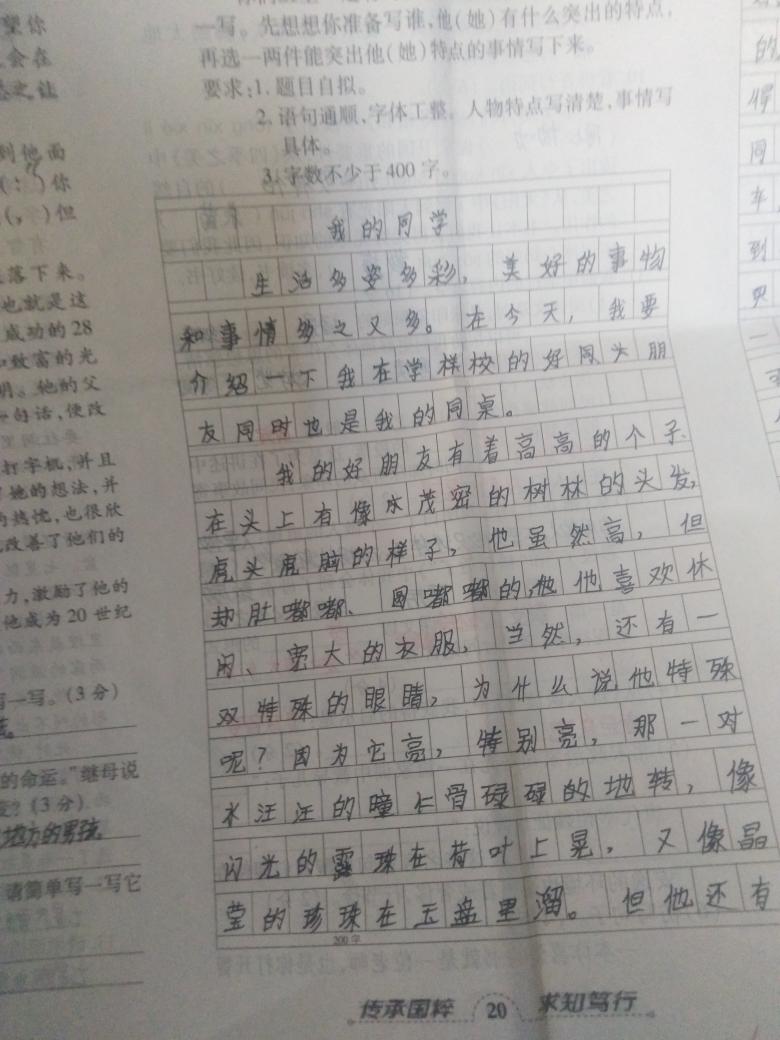 望你
会在
到他面
你
但
落下来。
也就是这
成功的28
和致富的光
明。他的父
一句话,使改
打字机,并且
她的想法,并
的热忱,也很欣
改善了他们的
力,激励了他的
他成为20世纪
写一写。(3分)
的命运。”继母说
(3分)
的男孩
请简单写一写它
一写。先想想你准备写谁,他(她)有什么突出的特点,
再选一两件能突出他(她)特点的事情写下来。
要求:1.题目自拟。
2.语句通顺,字体工整。人物特点写清楚,事情写
具体。
3.字数不少于400字。
我的同学
生活多姿多彩,美好的事物
和事情多之又多。在今天,我要
介绍一下我在学样校的好同头朋
友同时也是我的同桌。
我的好朋友有着高高的个子
在头上有像水茂密的树林的头发,
虎头虎脑的样子,他虽然高,但
却肚嘟嘟、圆嘟嘟的,他他喜欢休
闲、宽大的衣服,当然,还有一
双特殊的眼睛,为什么说他特殊
呢?因为它亮,特别亮,那一对
水汪汪的瞳仁骨碌碌的地转,像
闪光的露珠在荷叶上晃,又像晶
莹的珍珠在玉盘里溜。但他还有
200字
传承国粹 20 求知笃行
的
得
同
车
到
一